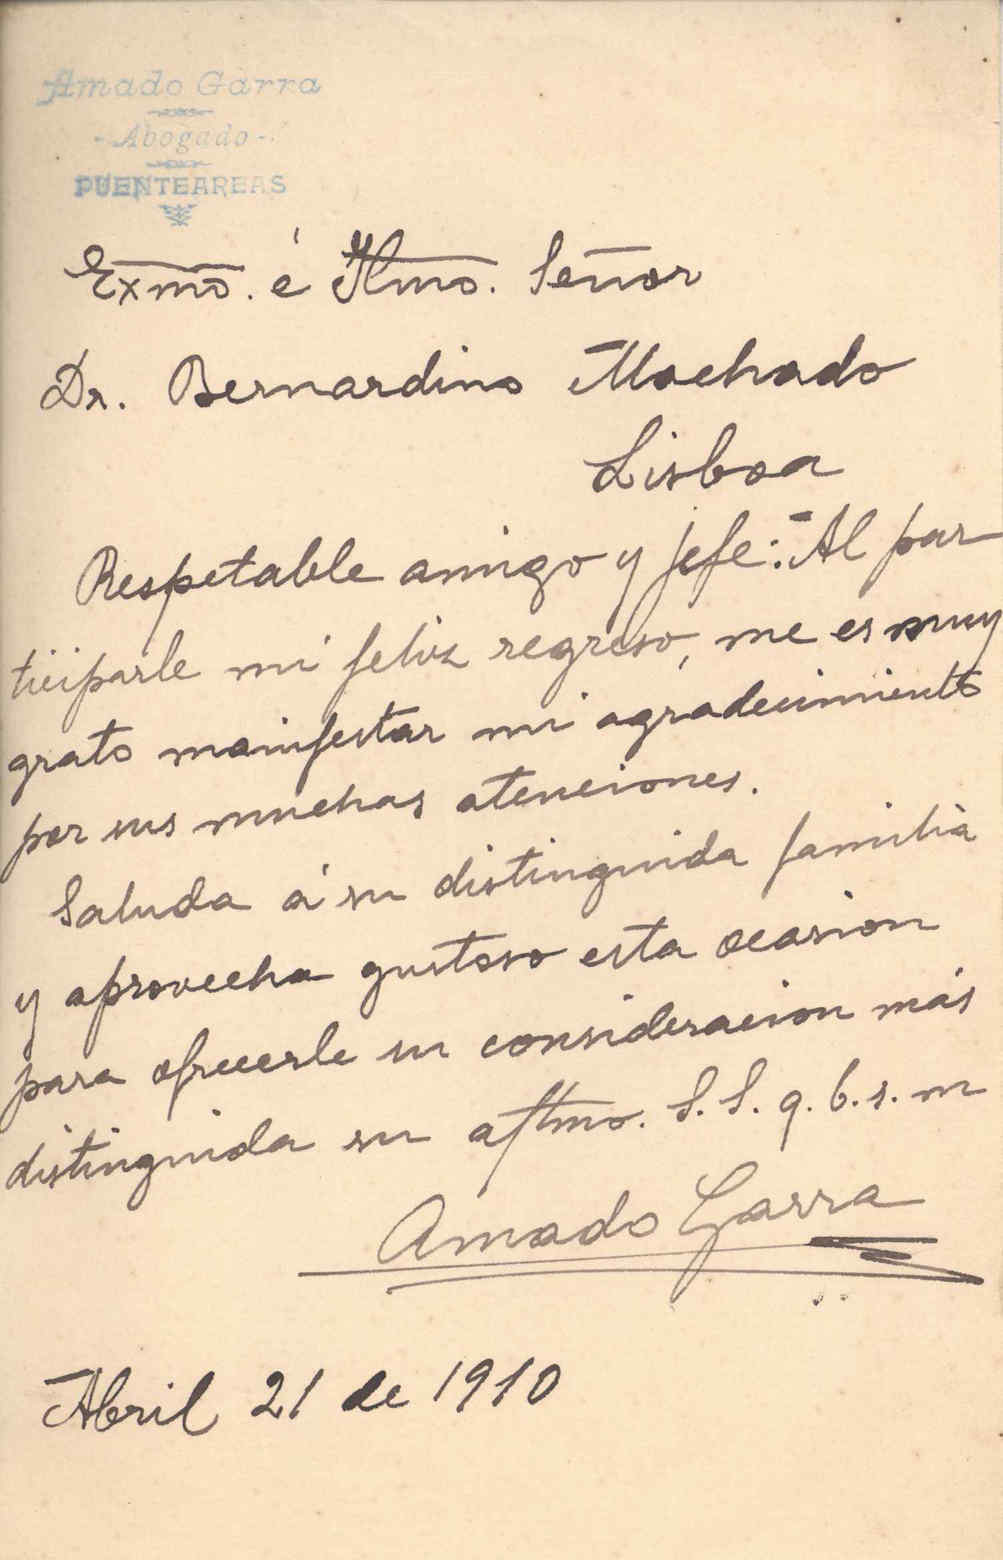 Amado Garra
- Abogado -
PUENTEAREAS
Exmo. é Ilmo. Señor
Dr. Bernardino Machado
Lisboa
Respetable amigo y jefe: Al par
ticiparle mi feliz regreso, me es muy
grato manifestar mi agradecimiento
por sus muchas atenciones.
Saluda á su distinguida familia
y aprovecha gustoso esta ocasion
para ofrecerle su consideracion más
distinguida su afftmo. S. S. q. b. s. m
Amado Garra
Abril 21 de 1910